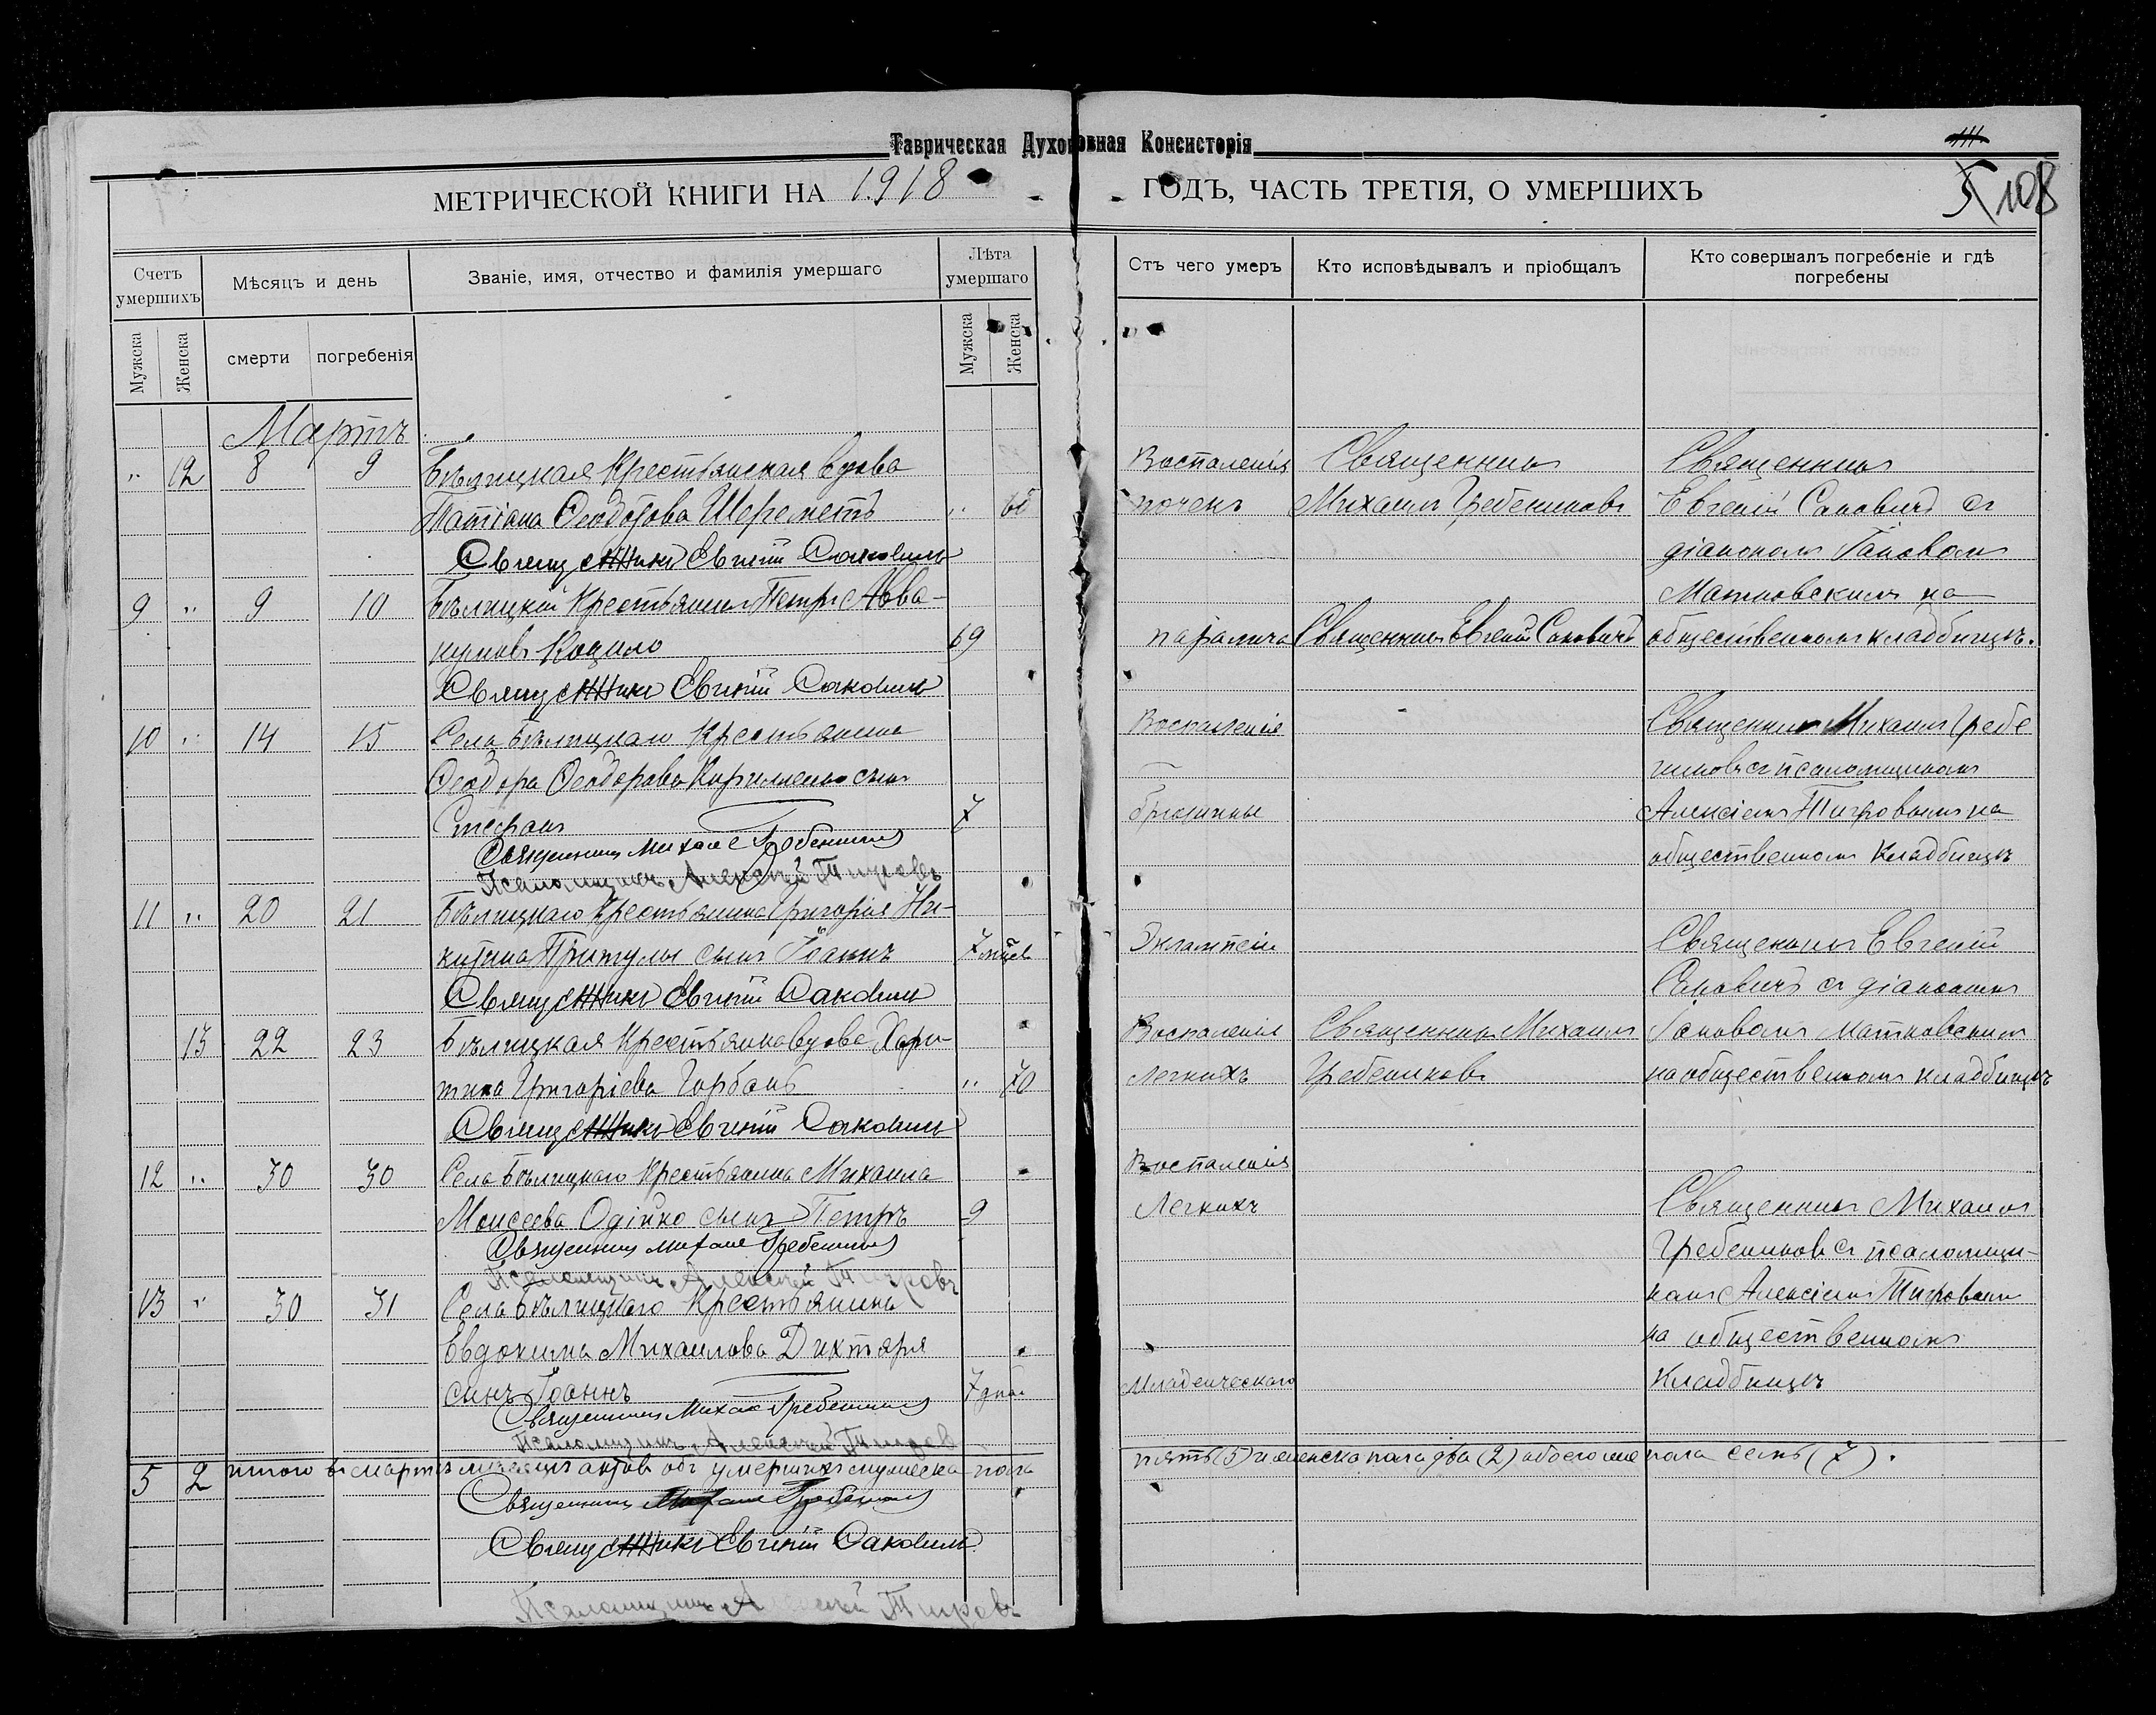 Таврическая Духовная Консисторія
111
5 108
МЕТРИЧЕСКОЙ КНИГИ НА 1918 ГОДЪ, ЧАСТЬ ТРЕТІЯ, О УМЕРШИХЪ
Счетъ умершихъ
Мѣсяцъ и день
Званіе, имя, отчество и фамилія умершаго
Лѣта умершаго
Стъ чего умеръ
Кто исповѣдывалъ и пріобщалъ
Кто совершалъ погребеніе и гдѣ погребены
Мужска
Женска
смерти
погребенія
Мужска
Женска
Мартъ
" 12 8 9 Бѣлицкая Крестьянская вдова Воспаленія Священникъ Священникъ
Татіана Ѳеодорова Шереметъ " 65 почекъ Михаилъ Гребениковъ Евгеній Саковичъ съ
Священникъ Евгеній Саковичъ діакономъ Іаковомъ
9 " 9 10 Бѣлицкій Крестьянинъ Петръ Авва- Матковскимъ на
кумовъ Коцило 69 паралича Священникъ Евгеній Саковичъ общественномъ кладбищѣ.
Священникъ Евгеній Саковичъ
10 " 14 15 Села Бѣлицкаго Крестьянина Воспаленія Священникъ Михаилъ Гребе
Ѳеодора Ѳеодорова Кириленко сынъ никовъ съ псаломщикомъ
Стефанъ 7 брюшины Алексіемъ Тигровымъ на
Священникъ Михаилъ Гребениковъ общественномъ кладбищѣ
Псаломщикъ Алексѣй Тигровъ
11 " 20 21 Бѣлицкаго Крестьянина Григорія Ни-
китина Притулы сынъ Іоаннъ 7 мцев Эклампсіи Священникъ Евгеній
Священникъ Евгеній Саковичъ Саковичъ съ діакономъ
13 22 23 Бѣлицкая Крестьянка вдова Хари- Воспаленія Священникъ Михаилъ Іаковомъ Матковскимъ
тина Григоріева Горбань " 70 Легкихъ Гребениковъ на общественномъ кладбищѣ
Священникъ Евгеній Саковичъ
12 " 30 30 Села Бѣлицкаго Крестьянина Михаила Воспаленія
Моисеева Одійко сынъ Петръ 9 Легкихъ Священникъ Михаилъ
Священникъ Михаилъ Гребениковъ Гребениковъ съ псаломщи-
Псаломщикъ Алексѣй Тигровъ
13 " 30 31 Села Бѣлицкаго Крестьянина комъ Алексіемъ Тигровымъ
Евдокима Михаилова Дихтяря на общественномъ
сынъ Іоаннъ 7 дней Младенческаго Кладбищѣ
Священникъ Михаилъ Гребениковъ
Псаломщикъ Алексѣй Тигровъ
5 2 итого въ мартѣ мѣсяцѣ актовъ объ умершихъ мужеска пола пять (5) и женска пола два (2) обоего же пола семь (7).
Священникъ Михаилъ Гребениковъ
Священникъ Евгеній Саковичъ
Псаломщикъ Алексѣй Тигровъ